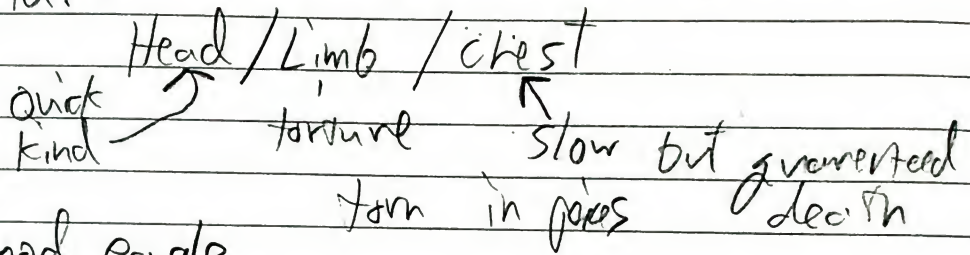 Head / Limb / chest
Quick
kind
torture
slow but guarenteed
death
torn in peices